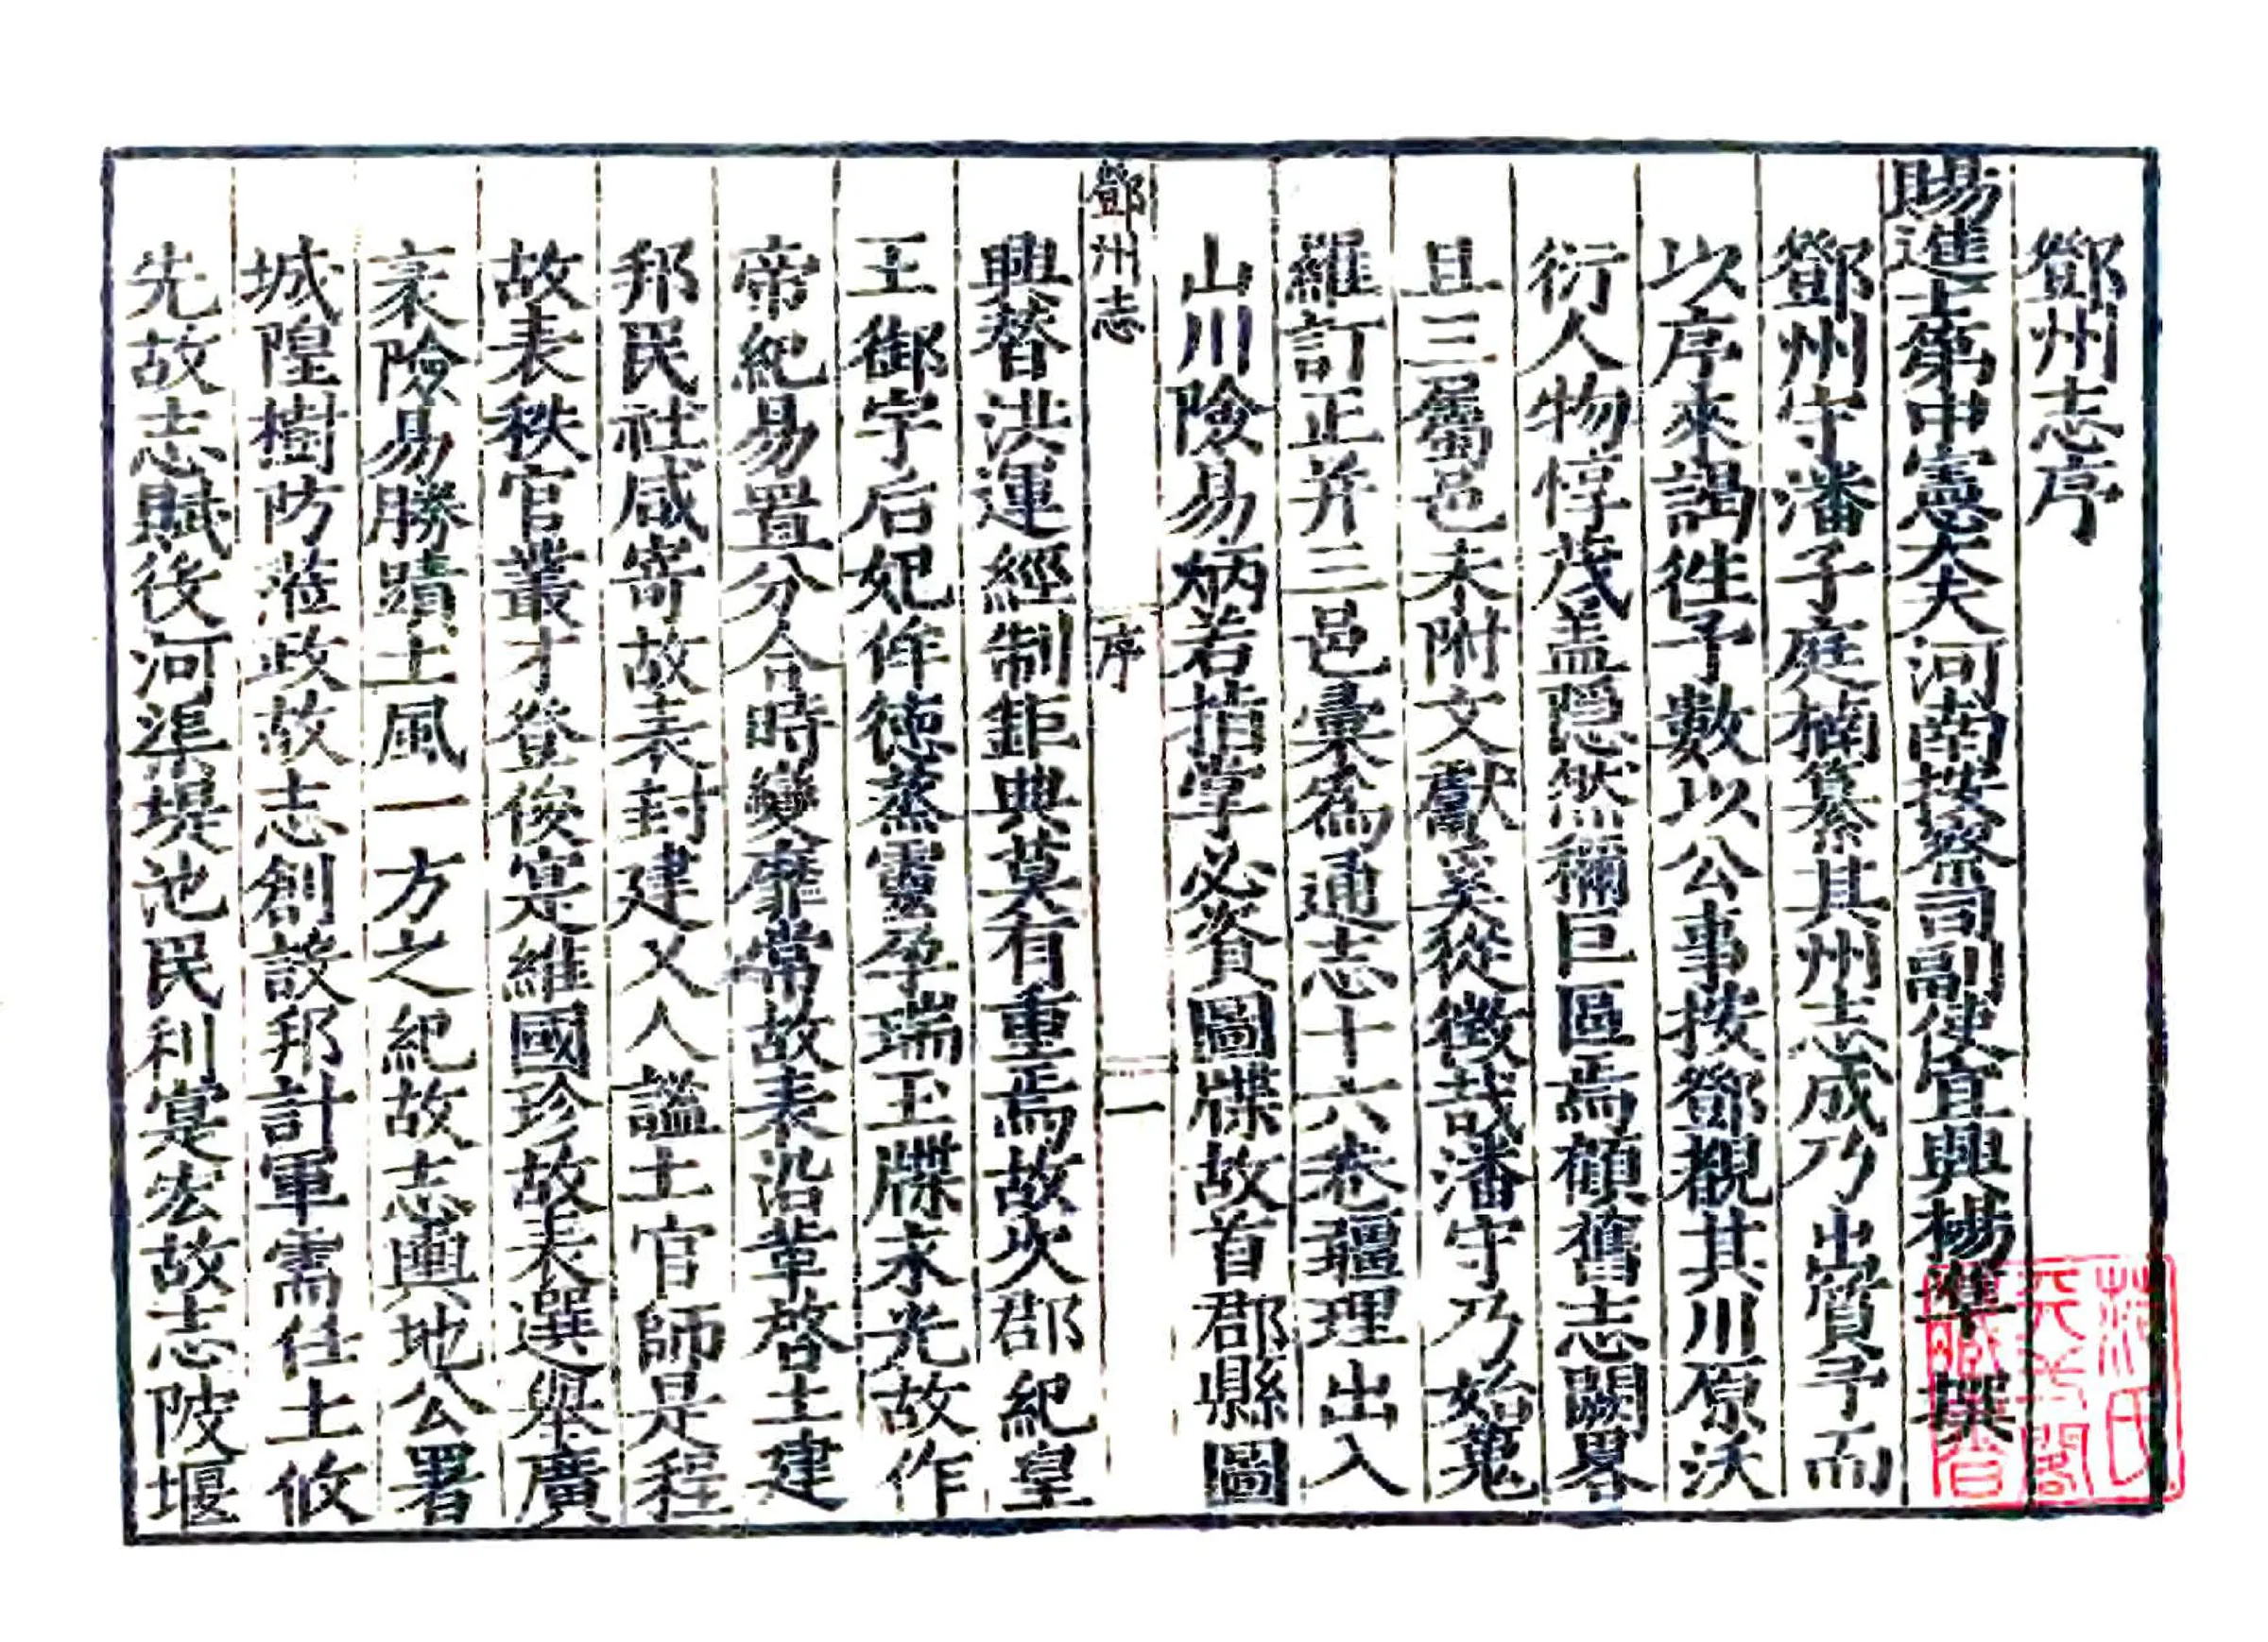 鄧州志序
賜進士第中憲大夫河南按察司副使宜興楊準撰
鄧州守潘子庭楠纂其州志成乃出質予而
以序來謁徃予數以公事按鄧觀其川原沃
衍人物惇茂盖隠然稱巨區焉顧舊志闕畧
且三屬邑未附文獻奚從徴哉潘守乃始蒐
羅訂正并三邑彙爲通志十六巻疆理出入
山川險易炳若指掌必資圖牒故首郡縣圖
鄧州志 序 一
興替洪運經制鉅典莫有重焉故次郡紀皇
王御宇后妃侔徳蒸靈孕瑞玉牒永光故作
帝紀易置分合時變靡常故表沿革啓土建
邦民社咸寄故表封建乂人謐土官師是程
故表秩官叢才登俊寔維國珍故表選舉廣
袤險易勝蹟土風一方之紀故志輿地公署
城隍樹防蒞政故志創設邦計軍需任土攸
先故志賦役河渠堤池民利寔宏故志陂堰